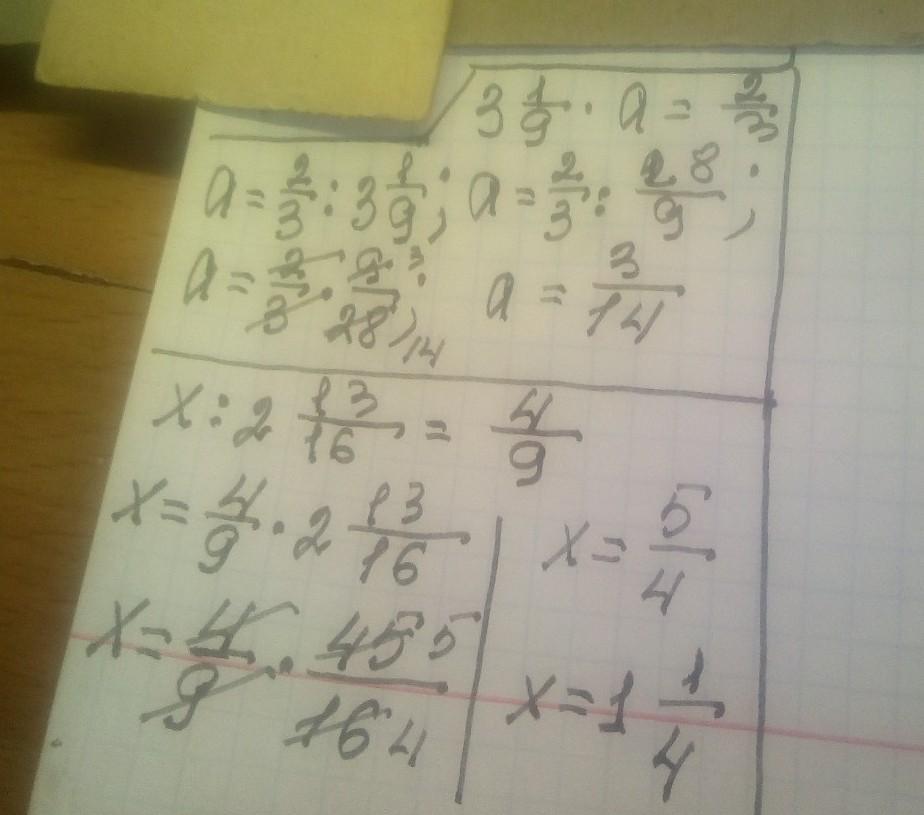 3 1/9 · a = 2/3
a = 2/3 : 3 1/9 ; a = 2/3 : 28/9 ;
a = 2/3 · 9/28 ; 3 14 a = 3/14
x : 2 13/16 = 4/9
x = 4/9 · 2 13/16
x = 4/9 · 45/16 5 4
x = 5/4
x = 1 1/4